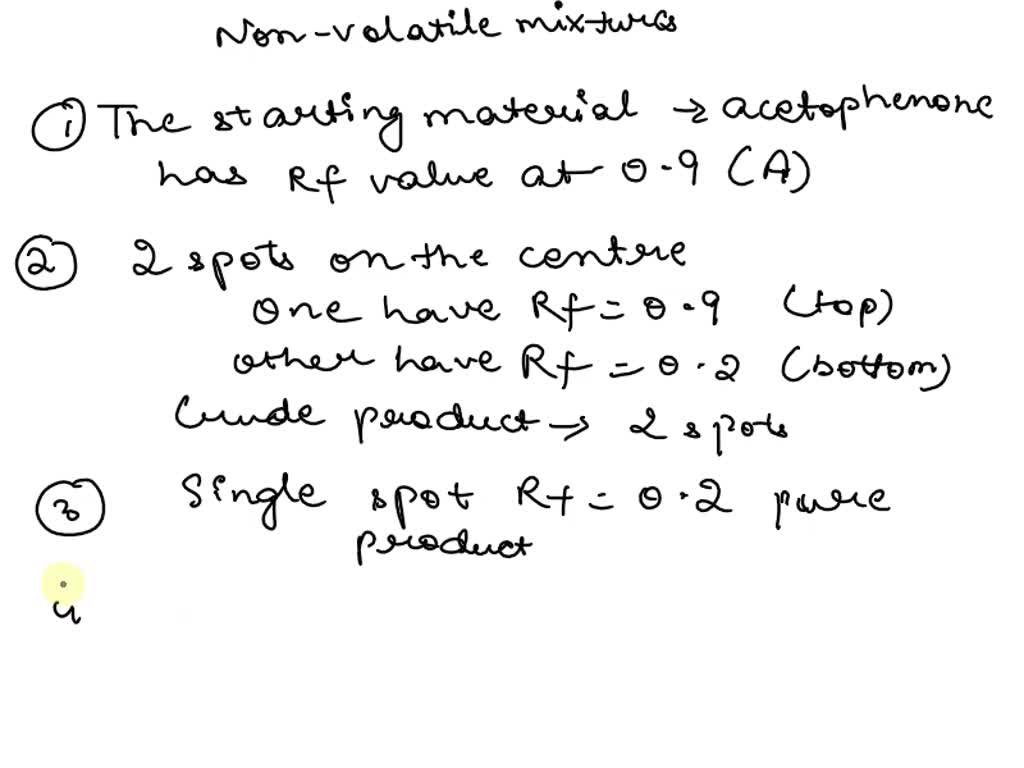 Non-volatile mixtures
① The starting material → acetophenone
has Rf value at 0.9 (A)
② 2 spots on the centre
One have Rf = 0.9 (top)
other have Rf = 0.2 (bottom)
Crude product → 2 spots
③ Single spot Rf = 0.2 pure
product
4